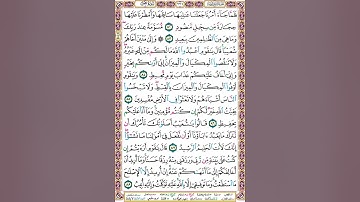 فَلَمَّا جَآءَ أَمْرُنَا جَعَلْنَا عَٰلِيَهَا سَافِلَهَا وَأَمْطَرْنَا عَلَيْهَا
حِجَارَةً مِّن سِجِّيلٍ مَّنضُودٍ ٨٢ مُّسَوَّمَةً عِندَ رَبِّكَ
وَمَا هِىَ مِنَ ٱلظَّٰلِمِينَ بِبَعِيدٍ ٨٣ ۞ وَإِلَىٰ مَدْيَنَ أَخَاهُمْ
شُعَيْبًا قَالَ يَٰقَوْمِ ٱعْبُدُوا۟ ٱللَّهَ مَا لَكُم مِّنْ إِلَٰهٍ غَيْرُهُۥ
وَلَا تَنقُصُوا۟ ٱلْمِكْيَالَ وَٱلْمِيزَانَ إِنِّىٓ أَرَىٰكُم بِخَيْرٍ
وَإِنِّىٓ أَخَافُ عَلَيْكُمْ عَذَابَ يَوْمٍ مُّحِيطٍ ٨٤ وَيَٰقَوْمِ
أَوْفُوا۟ ٱلْمِكْيَالَ وَٱلْمِيزَانَ بِٱلْقِسْطِ وَلَا تَبْخَسُوا۟
ٱلنَّاسَ أَشْيَآءَهُمْ وَلَا تَعْثَوْا۟ فِى ٱلْأَرْضِ مُفْسِدِينَ ٨٥
بَقِيَّتُ ٱللَّهِ خَيْرٌ لَّكُمْ إِن كُنتُم مُّؤْمِنِينَ وَمَآ أَنَا۠ عَلَيْكُم
بِحَفِيظٍ ٨٦ قَالُوا۟ يَٰشُعَيْبُ أَصَلَوٰتُكَ تَأْمُرُكَ أَن
نَّتْرُكَ مَا يَعْبُدُ ءَابَآؤُنَآ أَوْ أَن نَّفْعَلَ فِىٓ أَمْوَٰلِنَا مَا نَشَٰٓؤُا۟
إِنَّكَ لَأَنتَ ٱلْحَلِيمُ ٱلرَّشِيدُ ٨٧ قَالَ يَٰقَوْمِ أَرَءَيْتُمْ إِن
كُنتُ عَلَىٰ بَيِّنَةٍ مِّن رَّبِّى وَرَزَقَنِى مِنْهُ رِزْقًا حَسَنًا وَمَآ أُرِيدُ أَنْ
أُخَالِفَكُمْ إِلَىٰ مَآ أَنْهَىٰكُمْ عَنْهُ إِنْ أُرِيدُ إِلَّا ٱلْإِصْلَٰحَ
مَا ٱسْتَطَعْتُ وَمَا تَوْفِيقِىٓ إِلَّا بِٱللَّهِ عَلَيْهِ تَوَكَّلْتُ وَإِلَيْهِ أُنِيبُ ٨٨